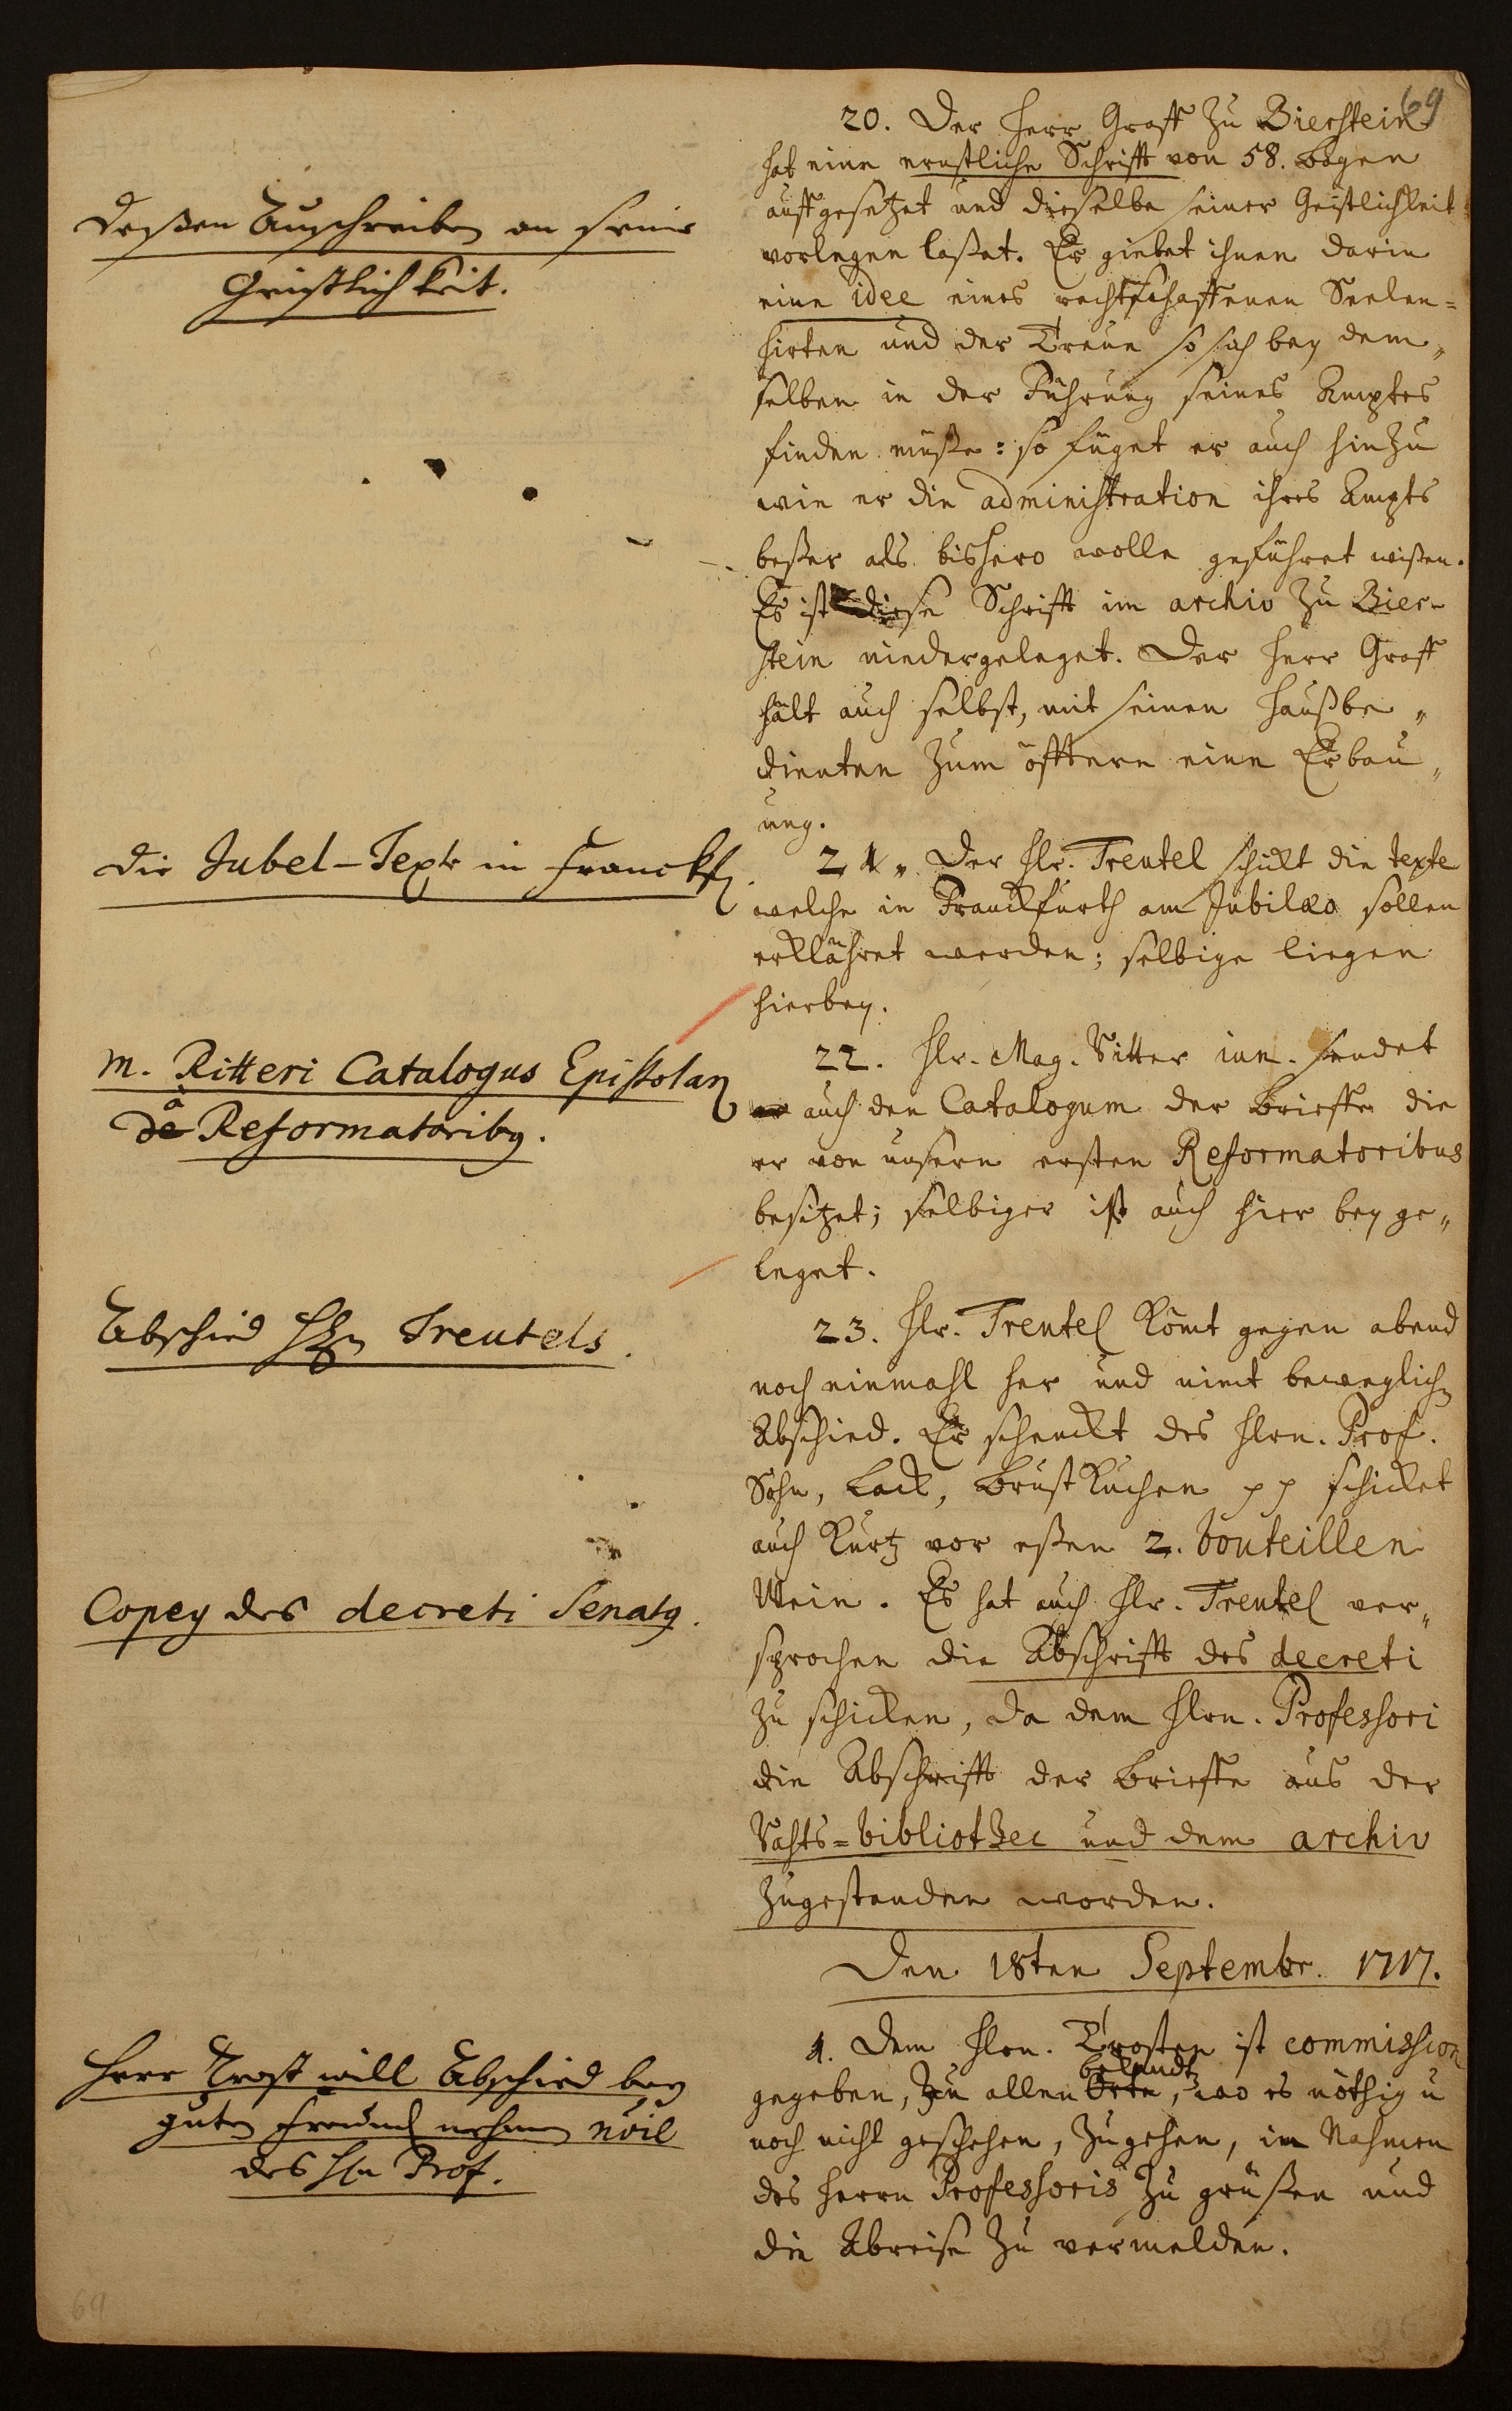 69
20. Der Herr Graff zu Bierstein
hat eine ernstliche Schrifft von 58. bogen
auffgesetzet und dieselbe seiner Geistlichkeit
vorlegen laßet. Er giebet ihnen darin
eine idee eines rechtschaffenen Seelen=
hirten und der Treue so sich bey dem„
selben in der Führung seines Amptes
finden müße: so füget er auch hinzu
wie er die administration ihres Ampts
beßer als bishero wolle geführet wißen.
Es ist diese Schrifft im archiv zu Bier-
stein niedergeleget. Der Herr Graff
hält auch selbst, mit seinen Haußbe„
dienten zum öfftern eine Erbau„
ung.
Deßen Außschreiben an seine
Geistlichkeit.
21„ Der Hr. Treutel schickt die texte
welche in Franckfurth am Jubilæo sollen
erklähret werden; selbige liegen
hierbey.
Die Jubel-Texte in Franckf.
22. Hr. Mag. Ritter iun. sendet
auch den Catalogum der brieffe die
er von unsern ersten Reformatoribus
besitzet; selbiger ist auch hier bey ge„
leget.
M. Ritteri Catalogus Epistolar
à Reformatoribg.
23. Hr. Treutel kömt gegen abend
noch einmahl her und nimt beweglichen
Abschied. Er schenckt des Hrn. Prof.
Sohn, Lack, brustkuchen pp schicket
auch kurtz vor eßen 2. bouteillen
Wein. Es hat auch Hr. Treutel ver„
sprochen die Abschrifft des decreti
zu schicken, da dem Hrn. Professori
die Abschrifft der brieffe aus der
Rahts=bibliothec und dem archiv
zugestanden worden.
Abschied Hrn Treutels.
Copey des decreti Senatg.
Den 18ten Septembr. 1717.
1. Dem Hrn. Trosten ist commission
gegeben, zu allen bekandten, wo es nöthig u
noch nicht geschehen, zugehen, im Nahmen
des Herrn Professoris zu grüßen und
die Abreise zu vermelden.
Herr Trost will Abschied bey
guten Freund nehmen
des Hn Prof.
69